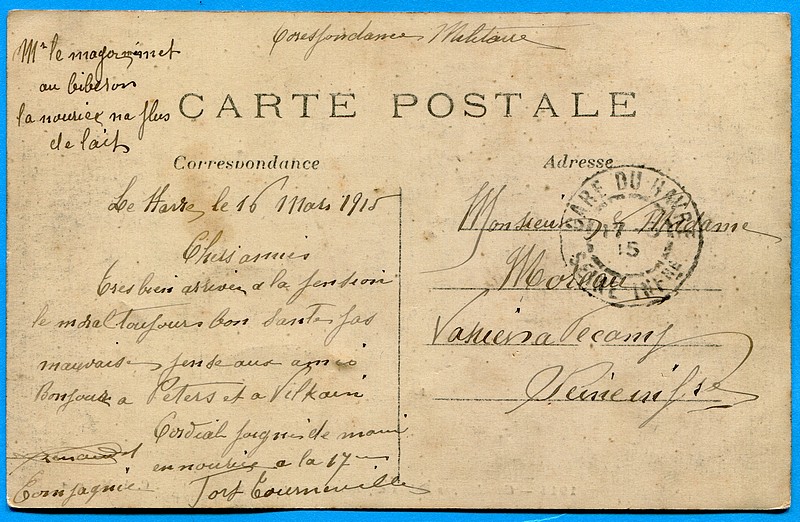 Corespondance Militaire
Mr le magorminet
au biberon
la nourice na plus
de lait
CARTE POSTALE
Correspondance
Adresse
Le Havre le 16 Mars 1915
Chers amis
Tres bien arrivée a la pension
le moral toujours bon santé pas
mauvaise pense aux amis
Bonjour a Peters et a Vilkain
Cordiale poignée de main
en nourice a la 17
Compagnie Fort Tourneville
Monsieur & Madame
a Fecamp
Seine infre
GARE DU HAVRE
17
15
SEINE INFRE